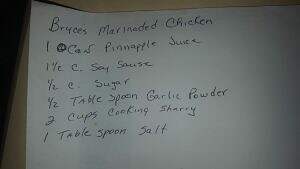 Bryces Marinaded Chicken
1 Can Pinnapple Juice
1½ c. Soy Sause
½ c. Sugar
½ Table spoon Garlic Powder
2 Cups Cooking Sharry
1 Table spoon Salt